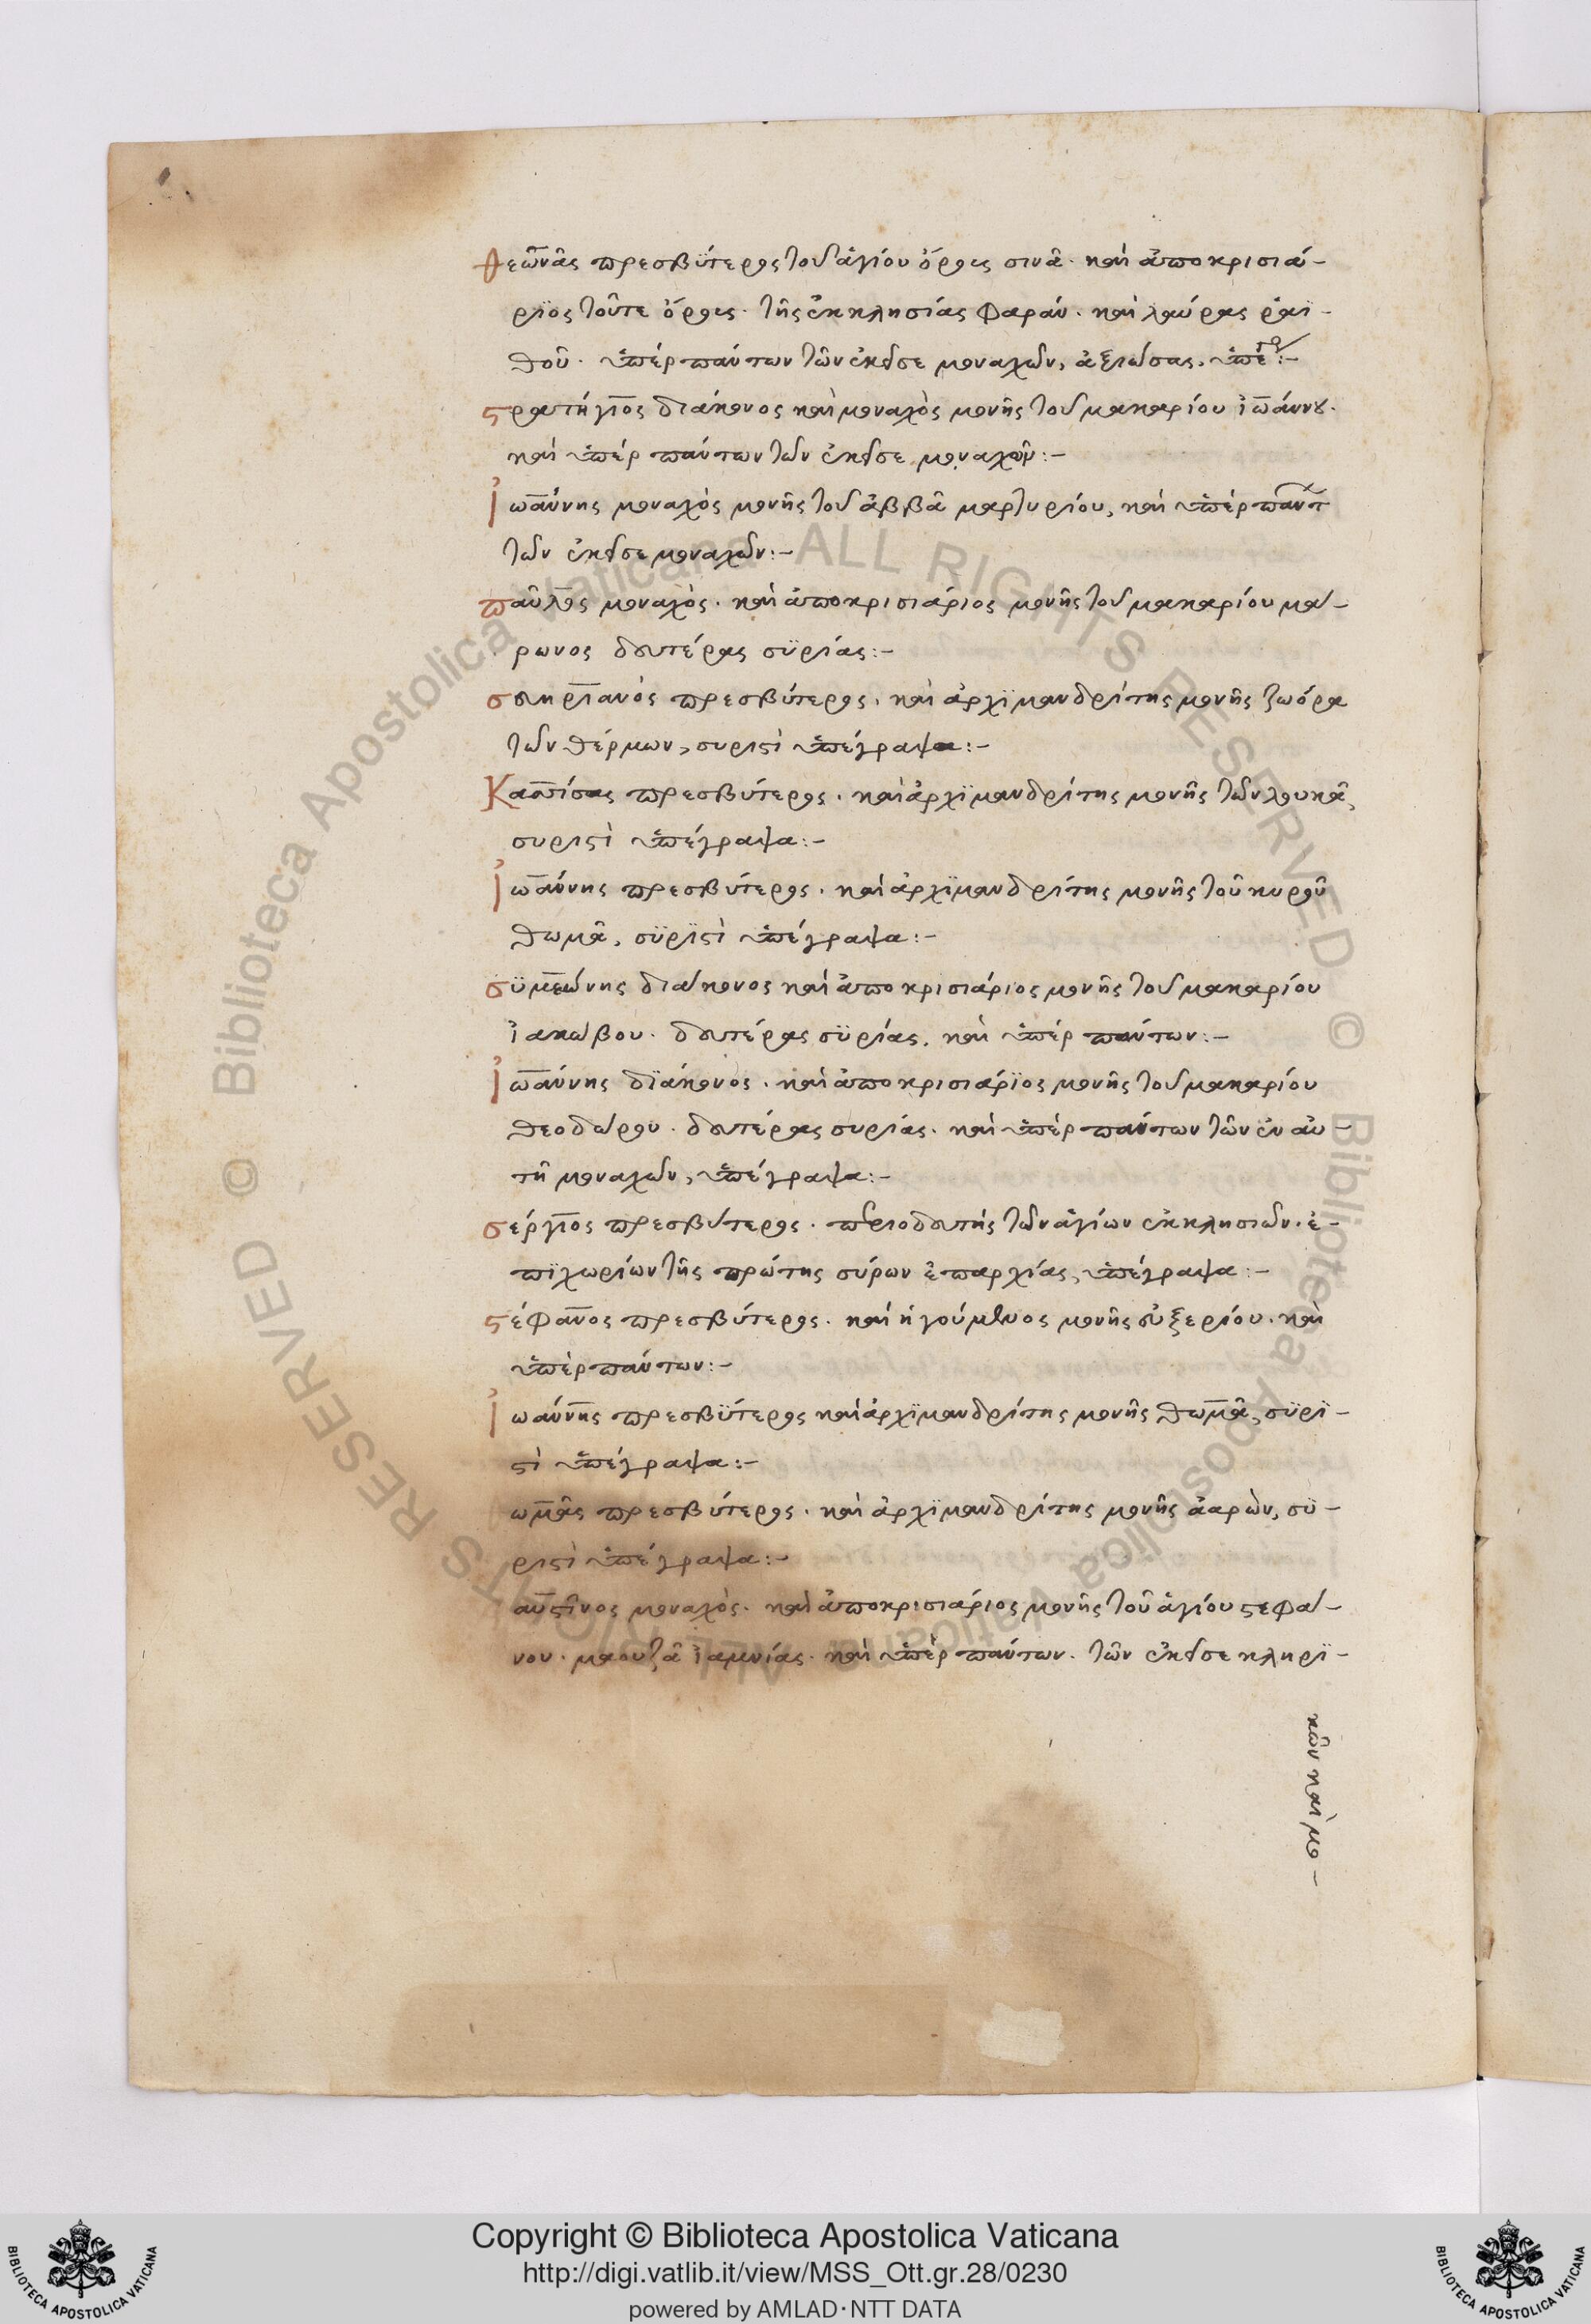 θεωνᾶς πρεσβϋτερος τοῦ ἁγίου ὄρους σινᾶ. καὶ ἀποκρισιά-
ρϊος τοῦτε ὄρους. τῆς ἐκκλησίας φαράν. καὶ λαύρας ῥαϊ-
θοῦ. ὑπέρ πάντων τῶν ἐκεῖσε μοναχῶν, ἀξιώσας. ὑπέγρ:-
ϛρατήγιος διάκονος καὶ μοναχὸς μονῆς τοῦ μακαρίου ἰωάννȣ.
καὶ ὑπέρ πάντων τῶν ἐκεῖσε μοναχῶν:-
Ἰωάννης μοναχὸς μονῆς τοῦ ἀββᾶ μαρτυρίου, καὶ ὑπέρ παντ
τῶν ἐκεῖσε μοναχῶν:-
παῦλος μοναχὸς. καὶ ἀποκρισιάριος μονῆς τοῦ μακαρίου μά-
ρωνος δευτέρας συρίας:-
σευηριανὸς πρεσβύτερος. καὶ ἀρχϊμανδρίτης μονῆς ζωόρα
τῶν θέρμων, συριϛὶ ὑπέγραψα:-
Καπίσας πρεσβύτερος. καὶ ἀρχϊμανδρίτης μονῆς τῶν λουκᾶ,
συριϛὶ ὑπέγραψα:-
Ἰωάννης πρεσβύτερος. καὶ ἀρχϊμανδρίτης μονῆς τοῦ κυροῦ
θωμᾶ, σϋρϊϛὶ ὑπέγραψα:-
σϋμεώνης διάκονος καὶ ἀποκρισιάριος μονῆς τοῦ μακαρίου
ἰακώβου. δευτέρας σϋρίας. καὶ ὑπέρ πάντων:-
Ἰωάννης δϊάκονος. καὶ ἀποκρισιάρϊος μονῆς τοῦ μακαρίου
θεοδώρου. δευτέρας συρίας. καὶ ὑπὲρ πάντων τῶν ἐν αὐ-
τῆ μοναχῶν, ὑπέγραψα:-
σέργιος πρεσβύτερος. περιοδευτής τῶν ἁγίων ἐκκλησιῶν. ἐ-
πϊχωρίων τῆς πρώτης σύρων ἐπαρχίας, ὑπέγραψα:-
ϛέφανος πρεσβύτερος. καὶ ἡγούμενος μονῆς εὐξερίου. καὶ
ὑπὲρ πάντων:-
Ἰωάννης πρεσβϋτερος καὶ ἀρχϊμανδρίτης μονῆς θωμᾶ, σϋρϊ-
ϛὶ ὑπέγραψα:-
ωμᾶς πρεσβύτερος. καὶ ἀρχϊμανδρίτης μονῆς ἀαρὼν, σϋ-
ριϛὶ ὑπέγραψα:-
αυϛῖνος μοναχὸς. καὶ ἀποκρισιάριος μονῆς τοῦ ἁγίου ϛεφά-
νου. μαουζᾶ ἰαμνίας. καὶ ὑπὲρ πάντων. τῶν ἐκεῖσε κληρϊ-
κῶν καὶ μο-
© Biblioteca Apostolica Vaticana ALL RIGHTS RESERVED © Biblioteca Apostolica Vaticana ALL RIGHTS RESERVED
Copyright © Biblioteca Apostolica Vaticana
http://digi.vatlib.it/view/MSS_Ott.gr.28/0230
powered by AMLAD·NTT DATA
BIBLIOTECA APOSTOLICA VATICANA
BIBLIOTECA APOSTOLICA VATICANA